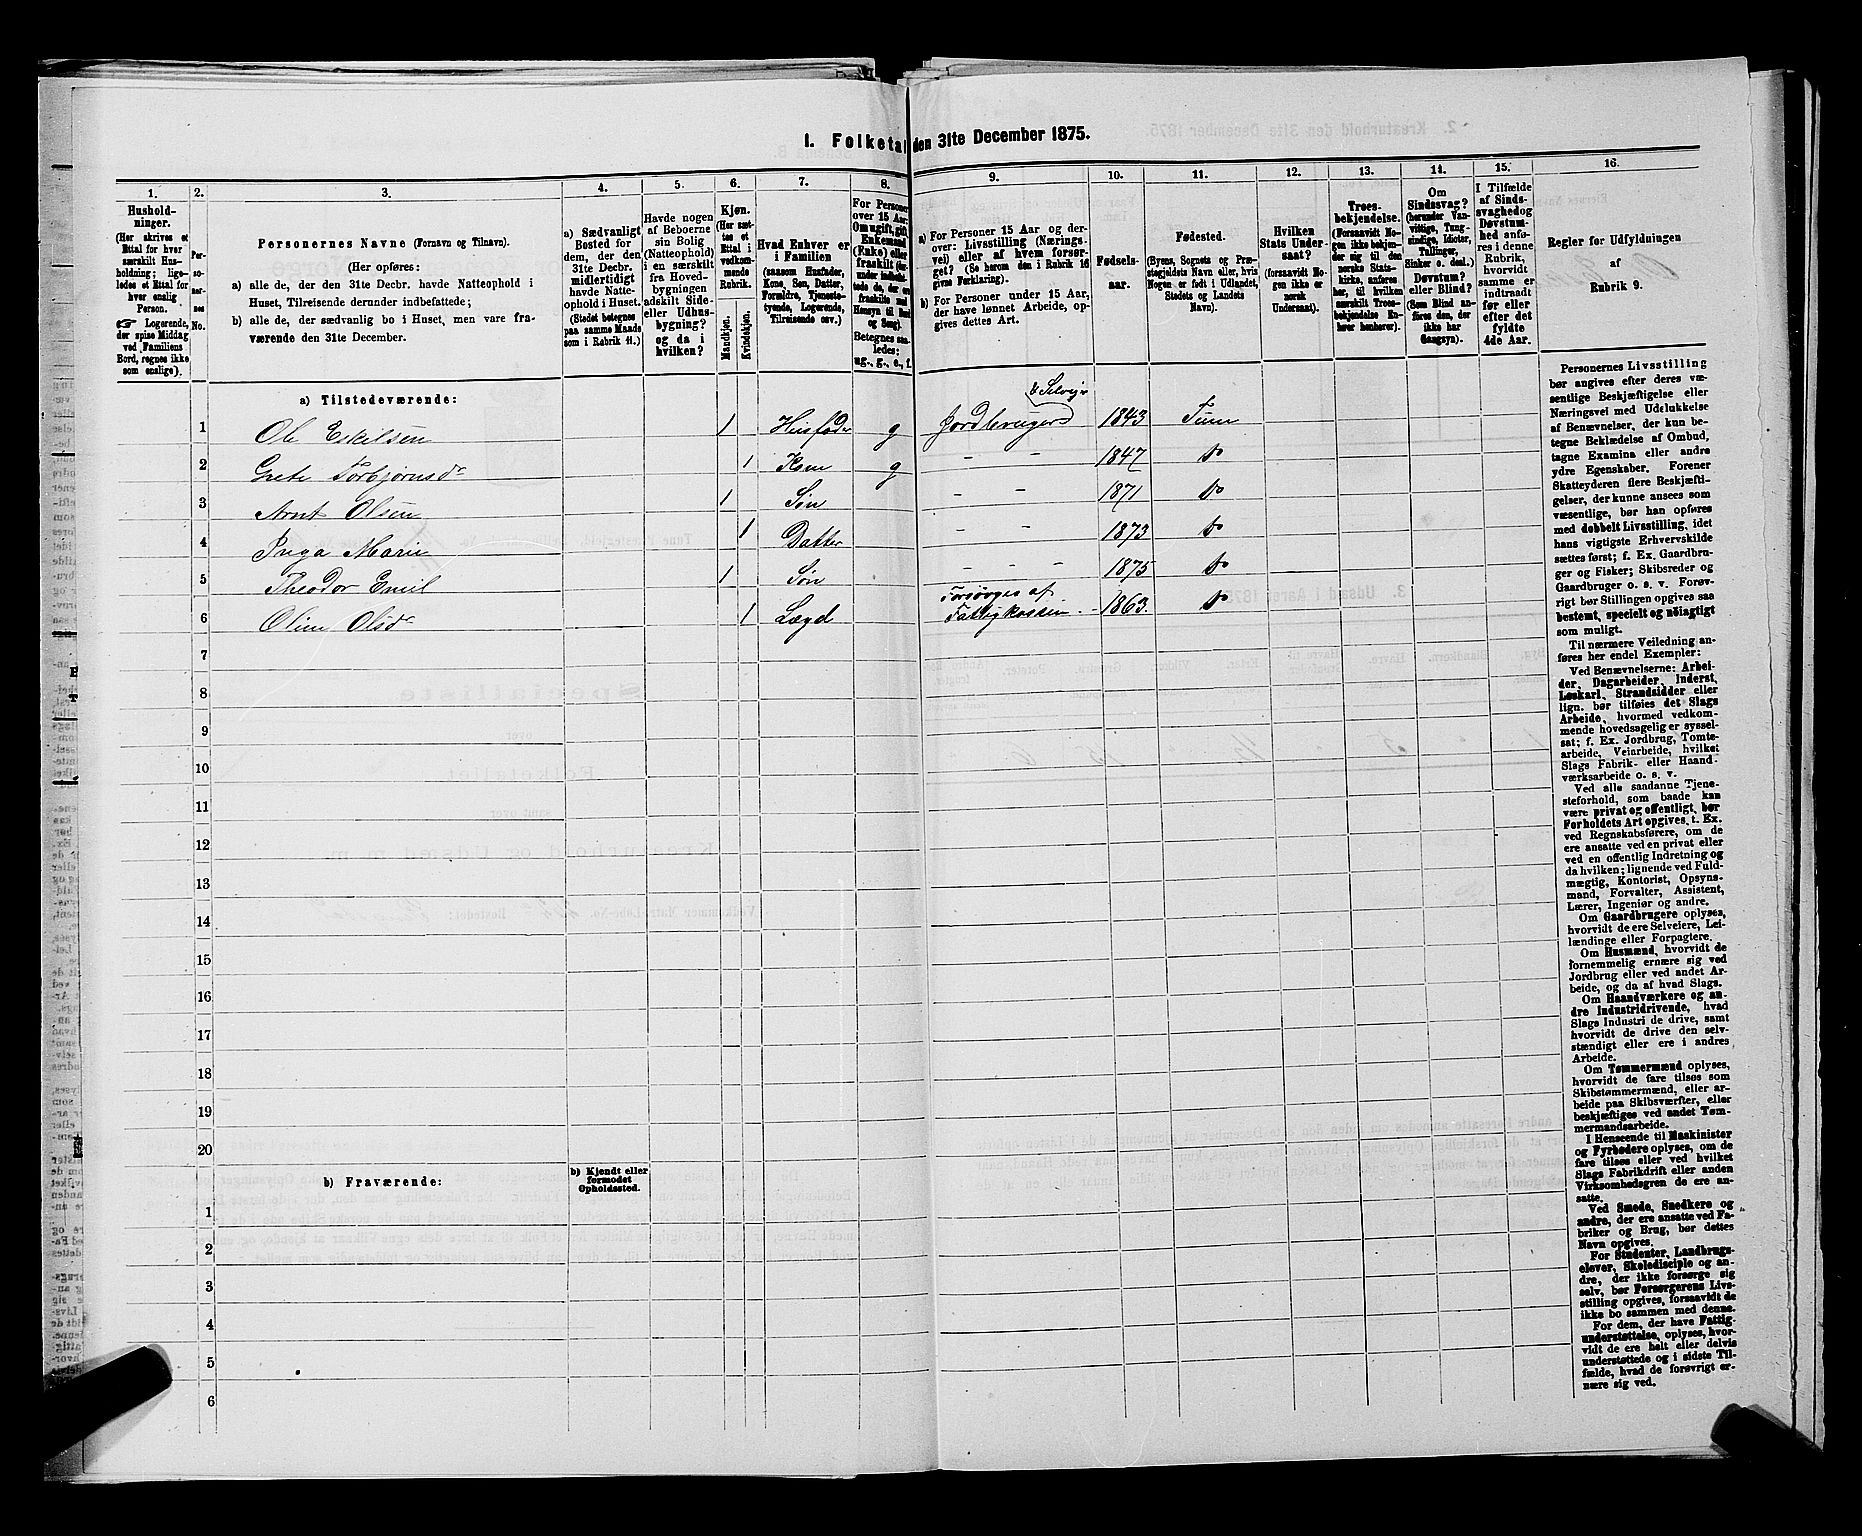 1. Folketal den 31te December 1875.
1.
Hushold-
ninger.
(Her skrives et
Ettal for hver
særskilt Hus-
holdning; lige-
ledes et Ettal for
hver enslig
Person.
☞ Logerende,
der spise Middag
ved Familiens
Bord, regnes ikke
som enslige).
2.
Per-
so-
ner-
nes
No.
3.
Personernes Navne (Fornavn og Tilnavn).
(Her opføres:
a) alle de, der den 31te Decbr. havde Natteophold i
Huset, Tilreisende derunder indbefattede;
b) alle de, der sædvanlig bo i Huset, men vare fra-
værende den 31te December.
4.
a) Sædvanligt
Bosted for
dem, der den
31te Decbr.
midlertidigt
havde Natte-
ophold i Huset.
(Stedet betegnes
paa samme Maade
som i Rubrik 11.)
5.
Havde nogen
af Beboerne
sin Bolig
(Natteophold)
i en særskilt
fra Hoved-
bygningen
adskilt Side-
eller Udhus-
bygning?
og da i
hvilken?
6.
Kjøn.
(Her sæt-
tes et
Ettal i
vedkom-
mende
Rubrik.
Mandkjøn.
Kvindekjøn.
7.
Hvad Enhver er
i Familien
(saasom Husfader,
Kone, Søn, Datter,
Forældre, Tjeneste-
tyende, Logerende,
Tilreisende osv.)
8.
For Personer
over 15 Aar:
Om ugift, gift,
Enkemand
(Enke) eller
fraskilt
Betegnes saa-
ledes:
ug., g., e., f.
9.
a) For Personer 15 Aar og der-
over: Livsstilling (Nærings-
vei) eller af hvem forsør-
get? (Se herom den i Rubrik 16
givne Forklaring).
b) For Personer under 15 Aar,
der have lønnet Arbeide, op-
gives dettes Art.
10.
Fødsels-
aar.
11.
Fødested.
(Byens, Sognets og Præ-
stegjeldets Navn eller, hvis
Nogen er født i Udlandet,
Stedets og Landets
Navn).
12.
Hvilken
Stats Under-
saat?
(forsaavidt No-
gen ikke er
norsk
Undersaat).
13.
Troes-
bekjendelse.
(Forsaavidt No-
gen ikke bekjen-
der sig til den
norske Stats-
kirke, anføres
her, til hvilken
særskilt Troes-
bekjendelse En-
hver henhører).
14.
Om
Sindssvag?
(herunder Van-
vittige, Tung-
sindige, Idioter,
Tullinger,
Sinker o. desl.)
Døvstum?
eller Blind?
(Som Blind an-
føres den, der
ikke har
Gangsyn).
15.
I Tilfælde
af Sinds-
svaghed og
Døvstum-
hed anfø-
res i denne
Rubrik,
hvorvidt
samme er
indtraadt
før eller
efter det
fyldte
4de Aar.
16.
Regler for Udfyldningen
af
Rubrik 9.
a) Tilstedeværende:
1 Ole Eskilsen 1 Husfader g Jordbruger & Selveier 1843 Tune
2 Grete Torbjørnsdr 1 Kone g - - 1847 do
3 Arnt Olsen 1 Søn - - 1871 do
4 Inga Marie 1 Datter - - 1873 do
5 Theodor Emil 1 Søn - - - 1875 do
6 Oline Olsdr 1 Lægd Forsørges af
Fattigkassen 1863 do
7
8
9
10
11
12
13
14
15
16
17
18
19
20
b) Fraværende:
b) Kjendt eller
formodet
Opholdssted.
1
2
3
4
5
6
Personernes Livsstilling
bør angives efter deres væ-
sentlige Beskjæftigelse eller
Næringsvei med Udelukkelse
af Benævnelser, der kun be-
tegne Beklædelse af Ombud,
tagne Examina eller andre
ydre Egenskaber. Forener
Skatteyderen flere Beskjæfti-
gelser, der kunne ansees som
væsentlige, bør han opføres
med dobbelt Livsstilling, idet
hans vigtigste Erhvervskilde
sættes først; f. Ex. Gaardbru-
ger og Fisker; Skibsreder og
Gaardbruger o. s. v. Forøv-
rigt bør Stillingen opgives saa
bestemt, specielt og nøiagtigt
som muligt.
Til nærmere Veiledning an-
føres her endel Exempler:
Ved Benævnelserne: Arbei-
der, Dagarbeider, Inderst,
Løskarl, Strandsidder eller
lign. bør tilføies det Slags
Arbeide, hvormed vedkom-
mende hovedsagelig er syssel-
sat; f. Ex. Jordbrug, Tomte-
arbeide, Veiarbeide, hvilket
Slags Fabrik- eller Haand-
værksarbeide o. s. v.
Ved alle saadanne Tjene-
steforhold, som baade kan
være privat og offentligt, bør
Forholdets Art opgives, t. Ex.
ved Regnskabsførere, om de
ere ansatte ved en privat eller
ved en offentlig Indretning og
da hvilken; lignende ved Fuld-
mægtig, Kontorist, Opsyns-
mand, Forvalter, Assistent,
Lærer, Ingeniør og andre.
Om Gaardbrugere oplyses,
hvorvidt de ere Selveiere, Lei-
lændinge eller Forpagtere.
Om Husmænd, hvorvidt de
fornemmelig ernære sig ved
Jordbrug eller ved andet Ar-
beide, og da af hvad Slags.
Om Haandværkere og an-
dre Industridrivende, hvad
Slags Industri de drive, samt
hvorvidt de drive den selv-
stændigt eller ere i andres
Arbeide.
Om Tømmermænd oplyses,
hvorvidt de fare tilsøs som
Skibstømmermænd, eller ar-
beide paa Skibsværfter, eller
beskjæftiges ved andet Tøm-
mermandsarbeide.
I Henseende til Maskinister
og Fyrbødere oplyses, om de
fare tilsøs eller ved hvilket
Slags Fabrikdrift eller anden
Virksomhedsgren de ere an-
satte.
Ved Smede, Snedkere og
andre, der ere ansatte ved Fa-
briker og Brug, bør dettes
Navn opgives.
For Studenter, Landbrugs-
elever, Skoledisciple og an-
dre, der ikke forsørge sig
selv, bør Forsørgerens Livs-
stilling opgives, forsaavidt de
ikke bo sammen med denne.
For dem, der have Fattig-
understøttelse, oplyses, hvor-
vidt de ere helt eller delvis
understøttede og i sidste Til-
fælde, hvad de forøvrigt er-
nære sig ved.